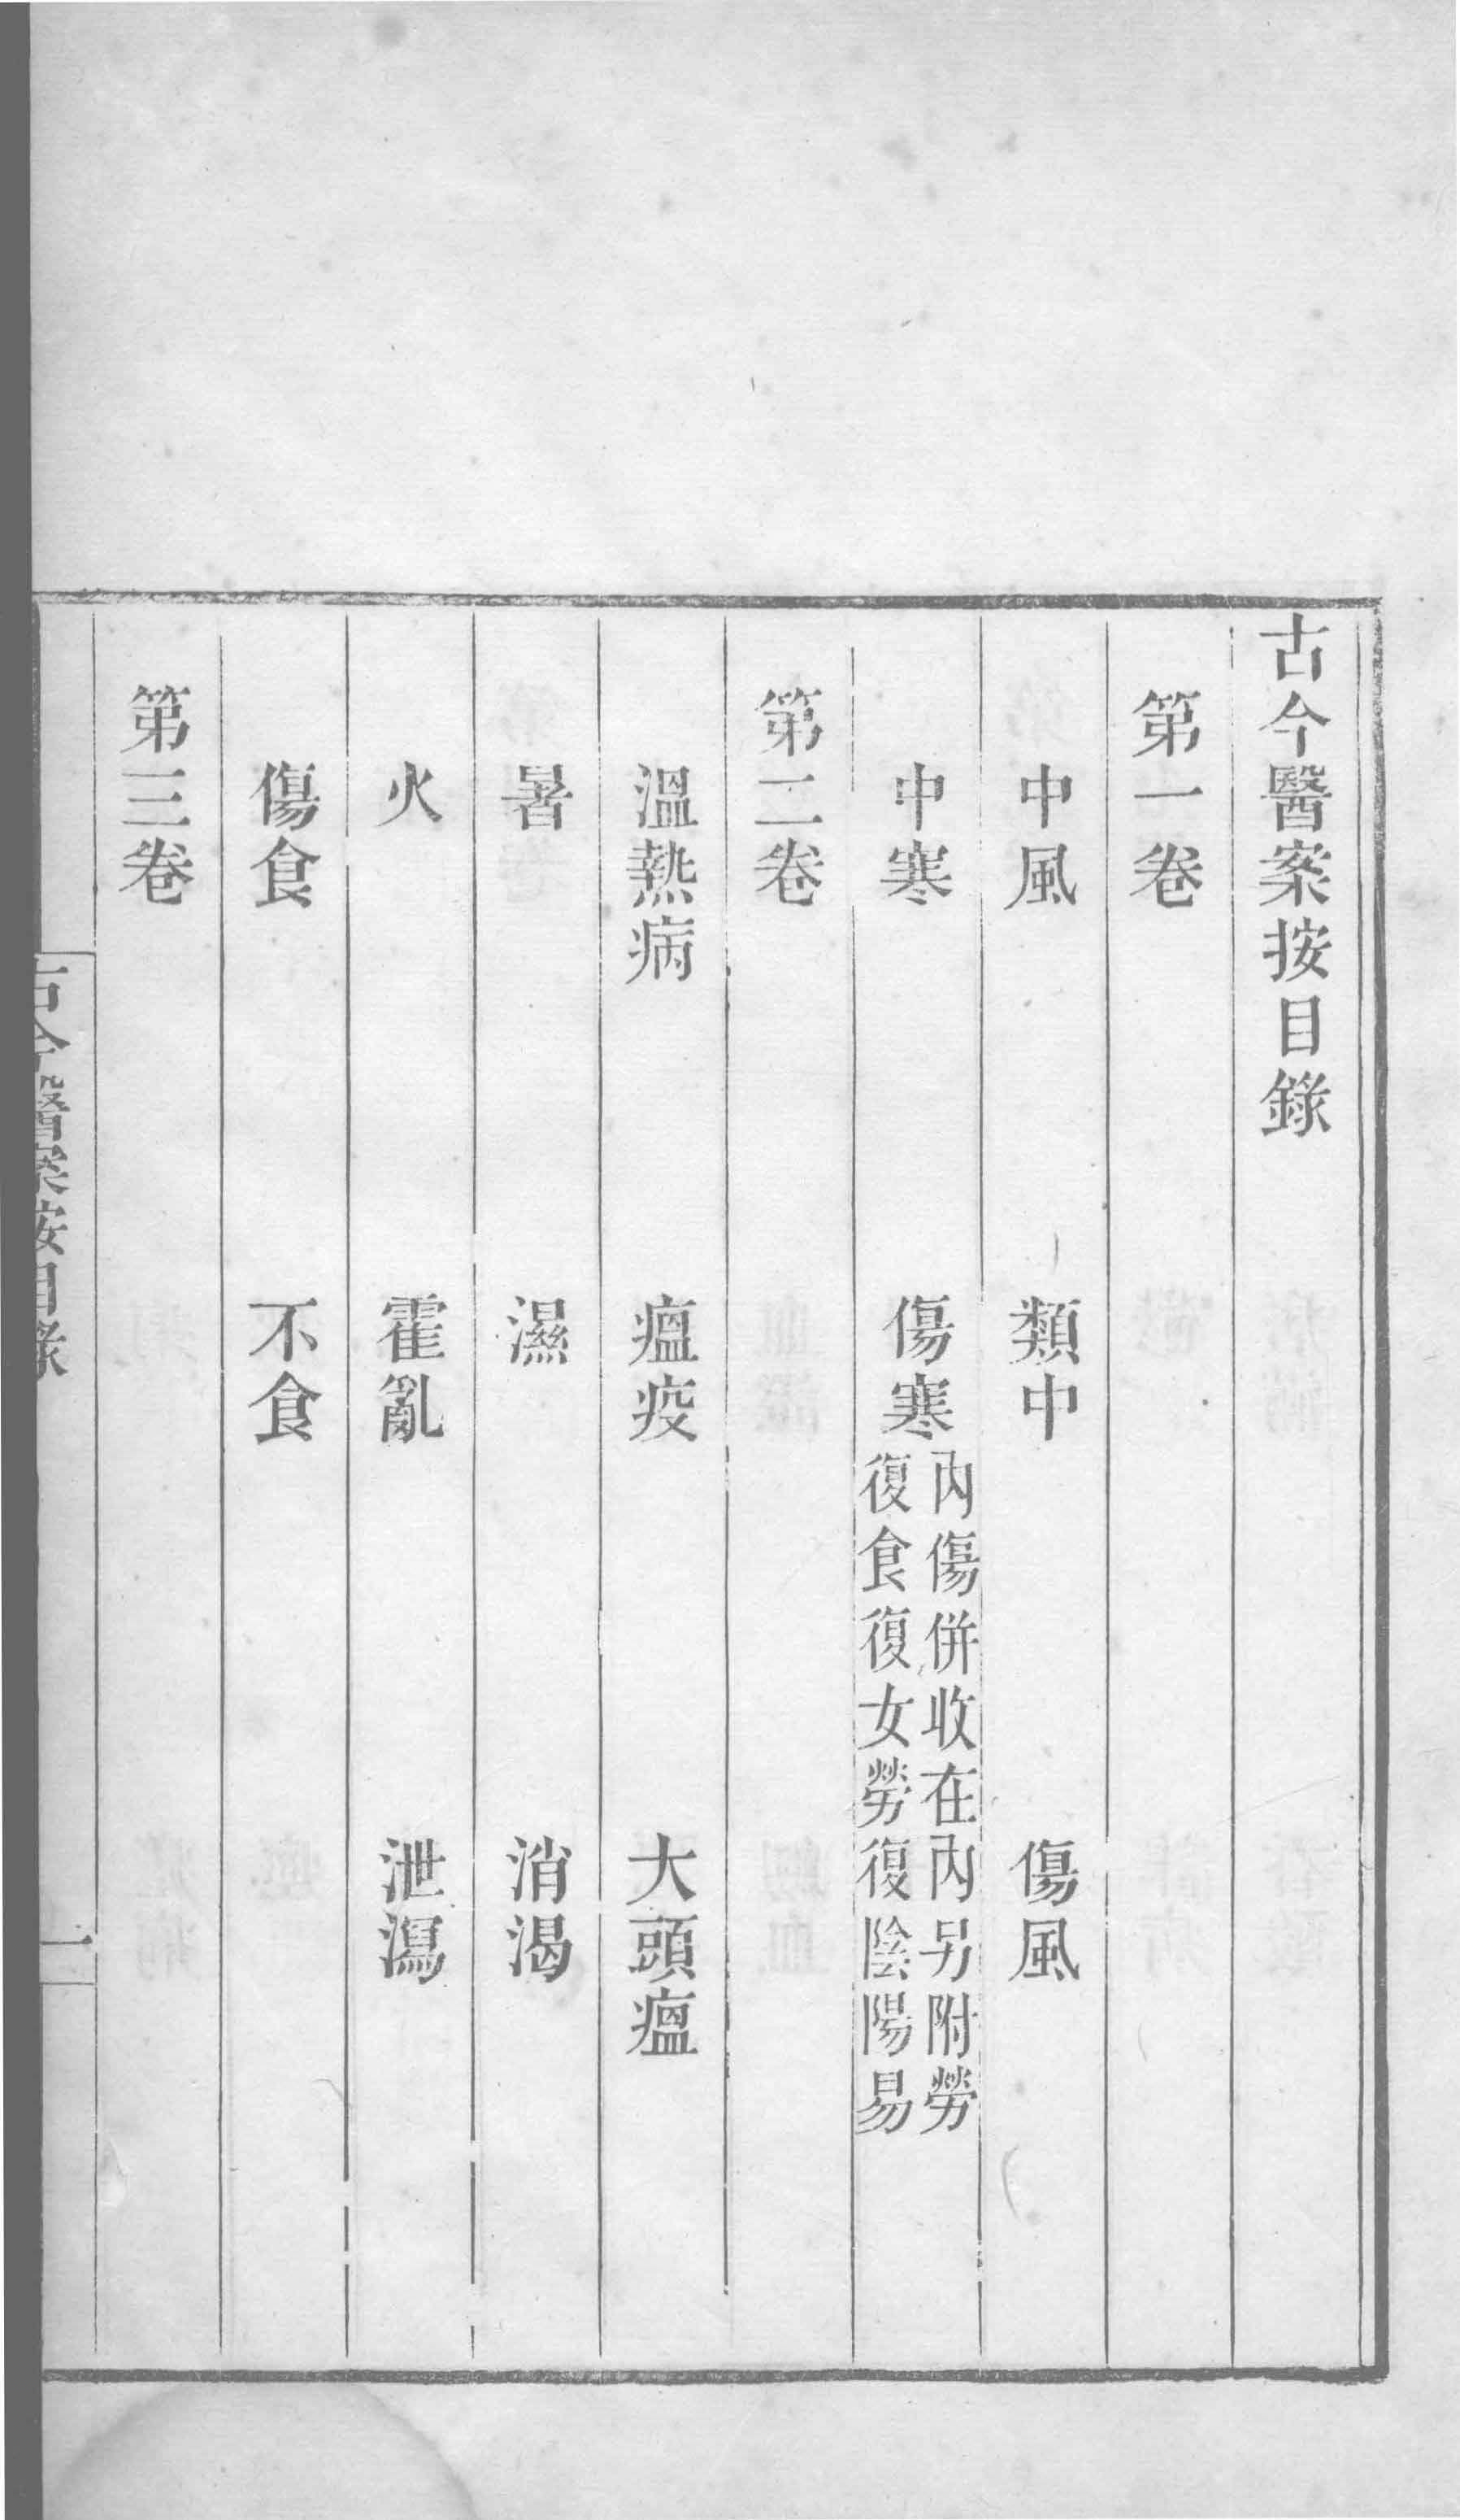 古今醫案按目錄
第一卷
中風　類中　傷風
中寒　傷寒
內傷併收在內另附勞
復食復女勞復陰陽易
第二卷
溫熱病　瘟疫　大頭瘟
暑　濕　消渴
火　霍亂　泄瀉
傷食　不食
第三卷
古今醫案按目錄　一